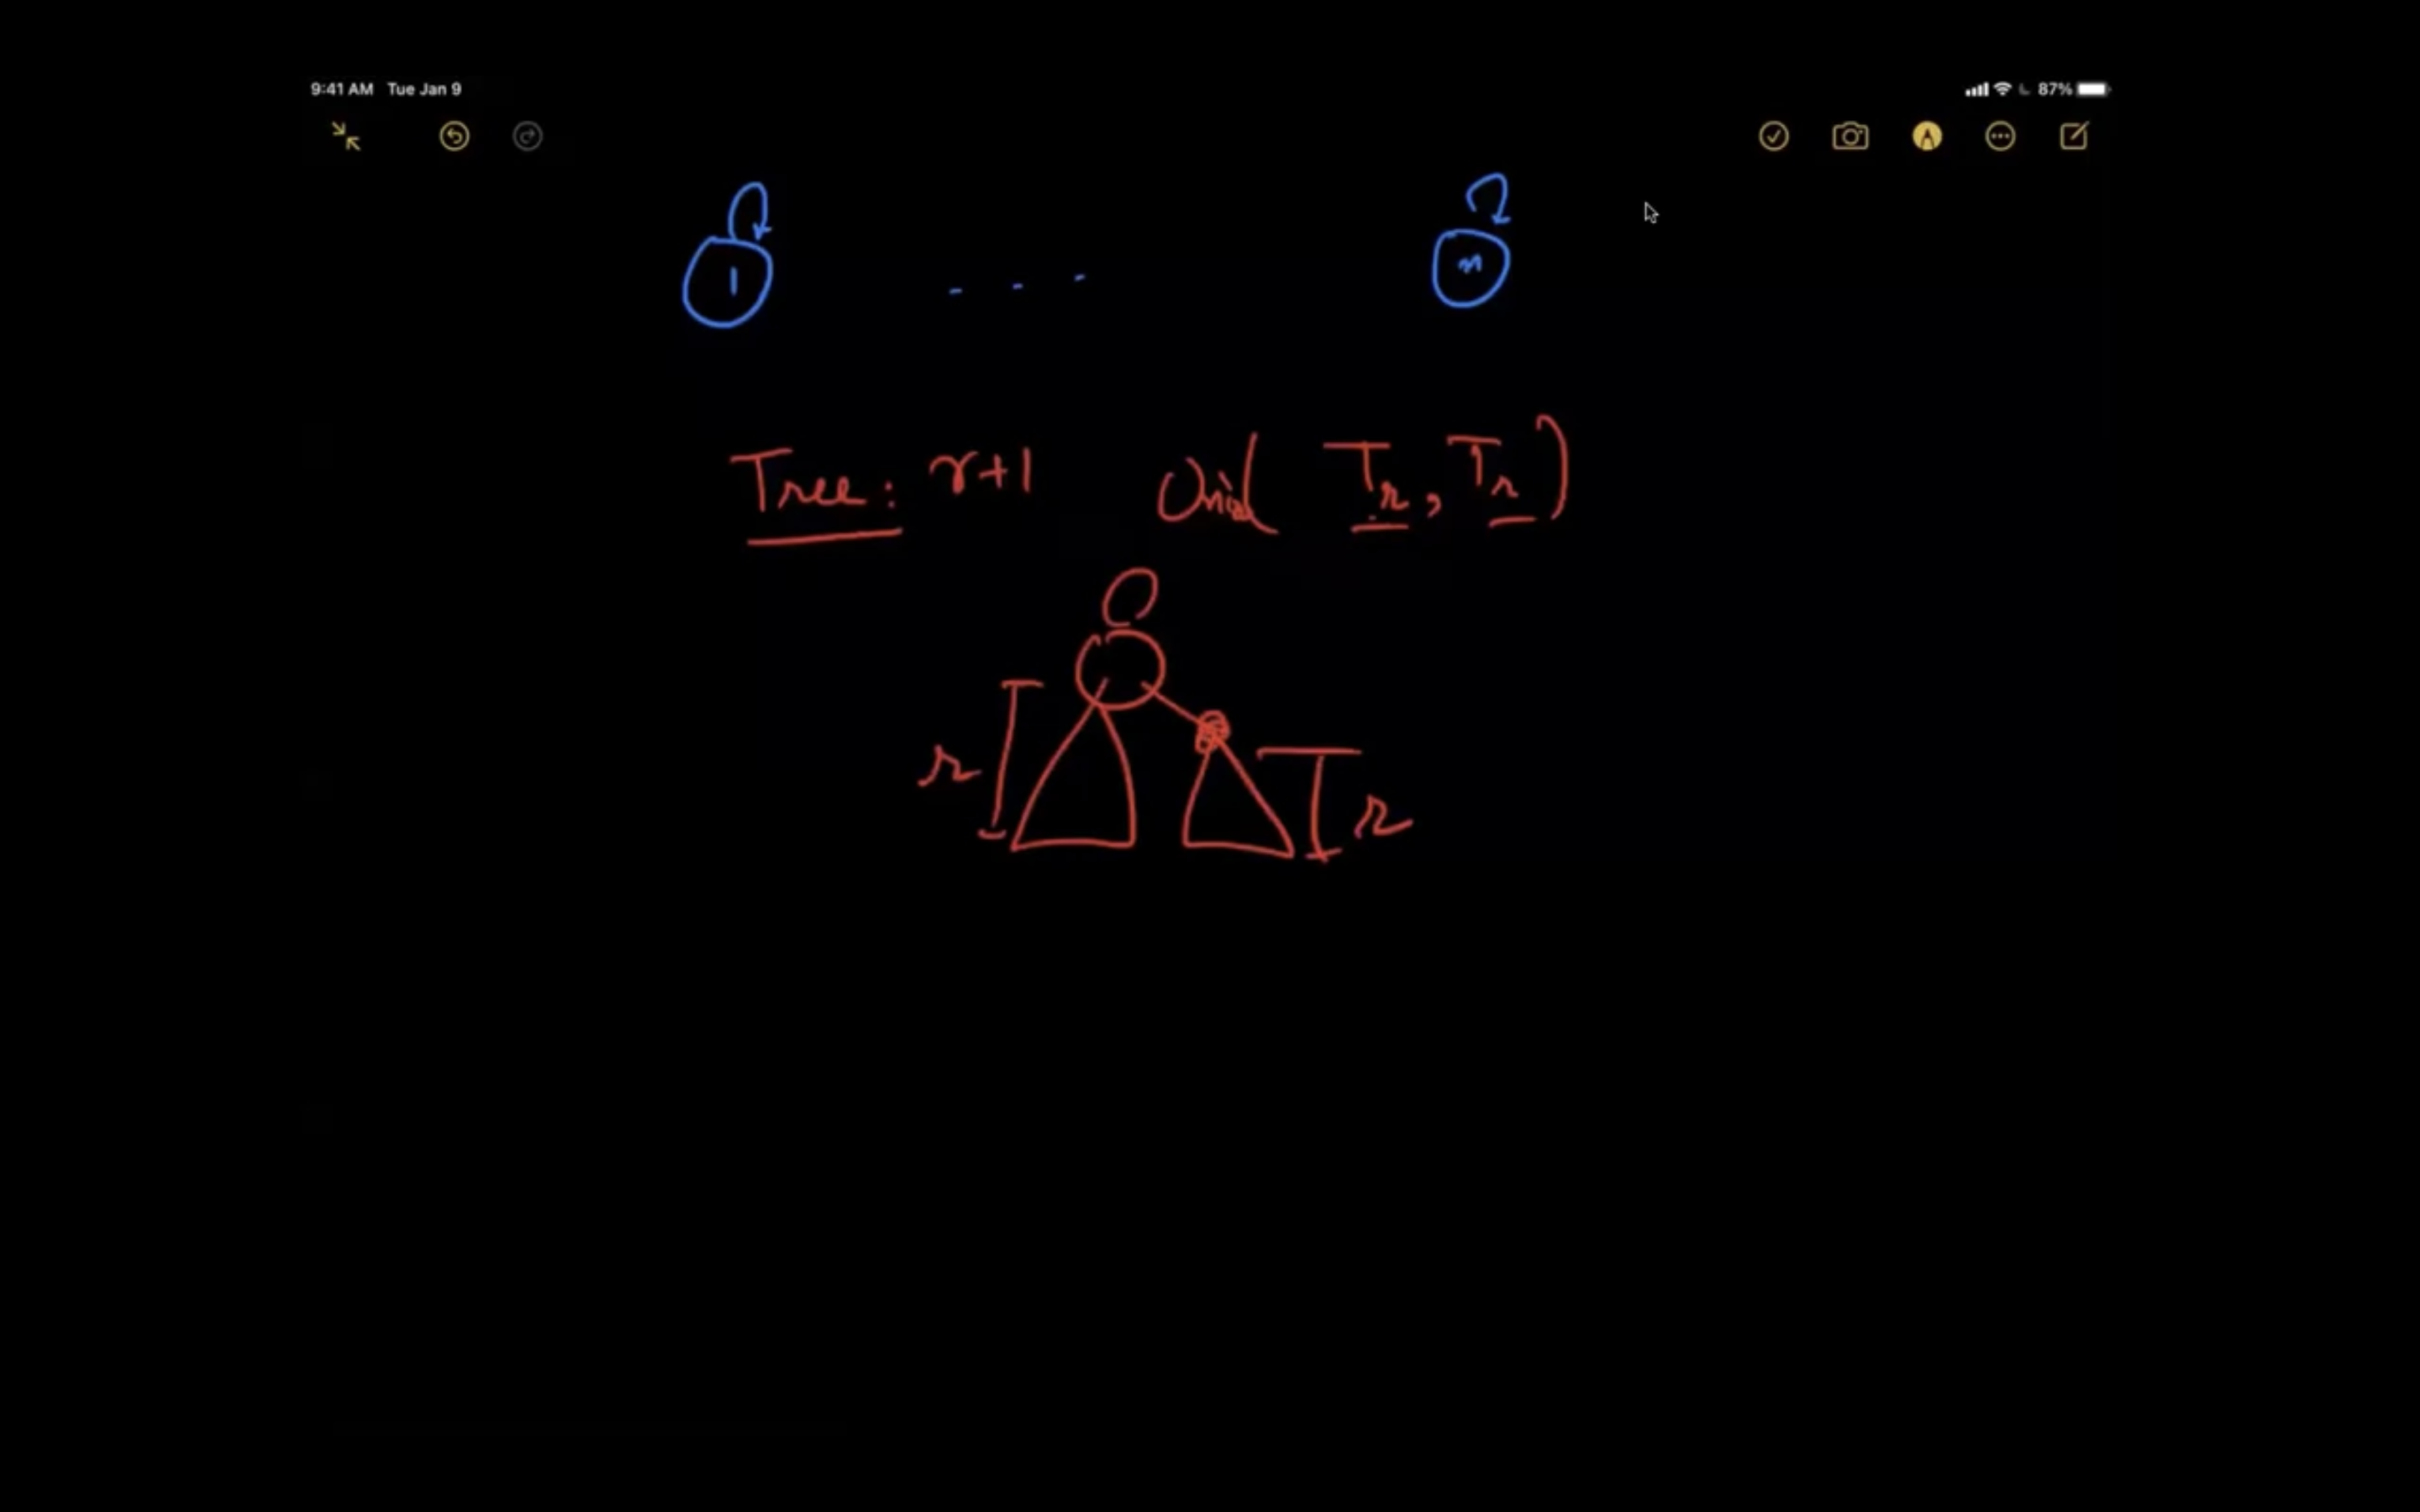 9:41 AM Tue Jan 9 87%
1 - - - n
Tree: r+1 Union( Tr, Tr )
r
r